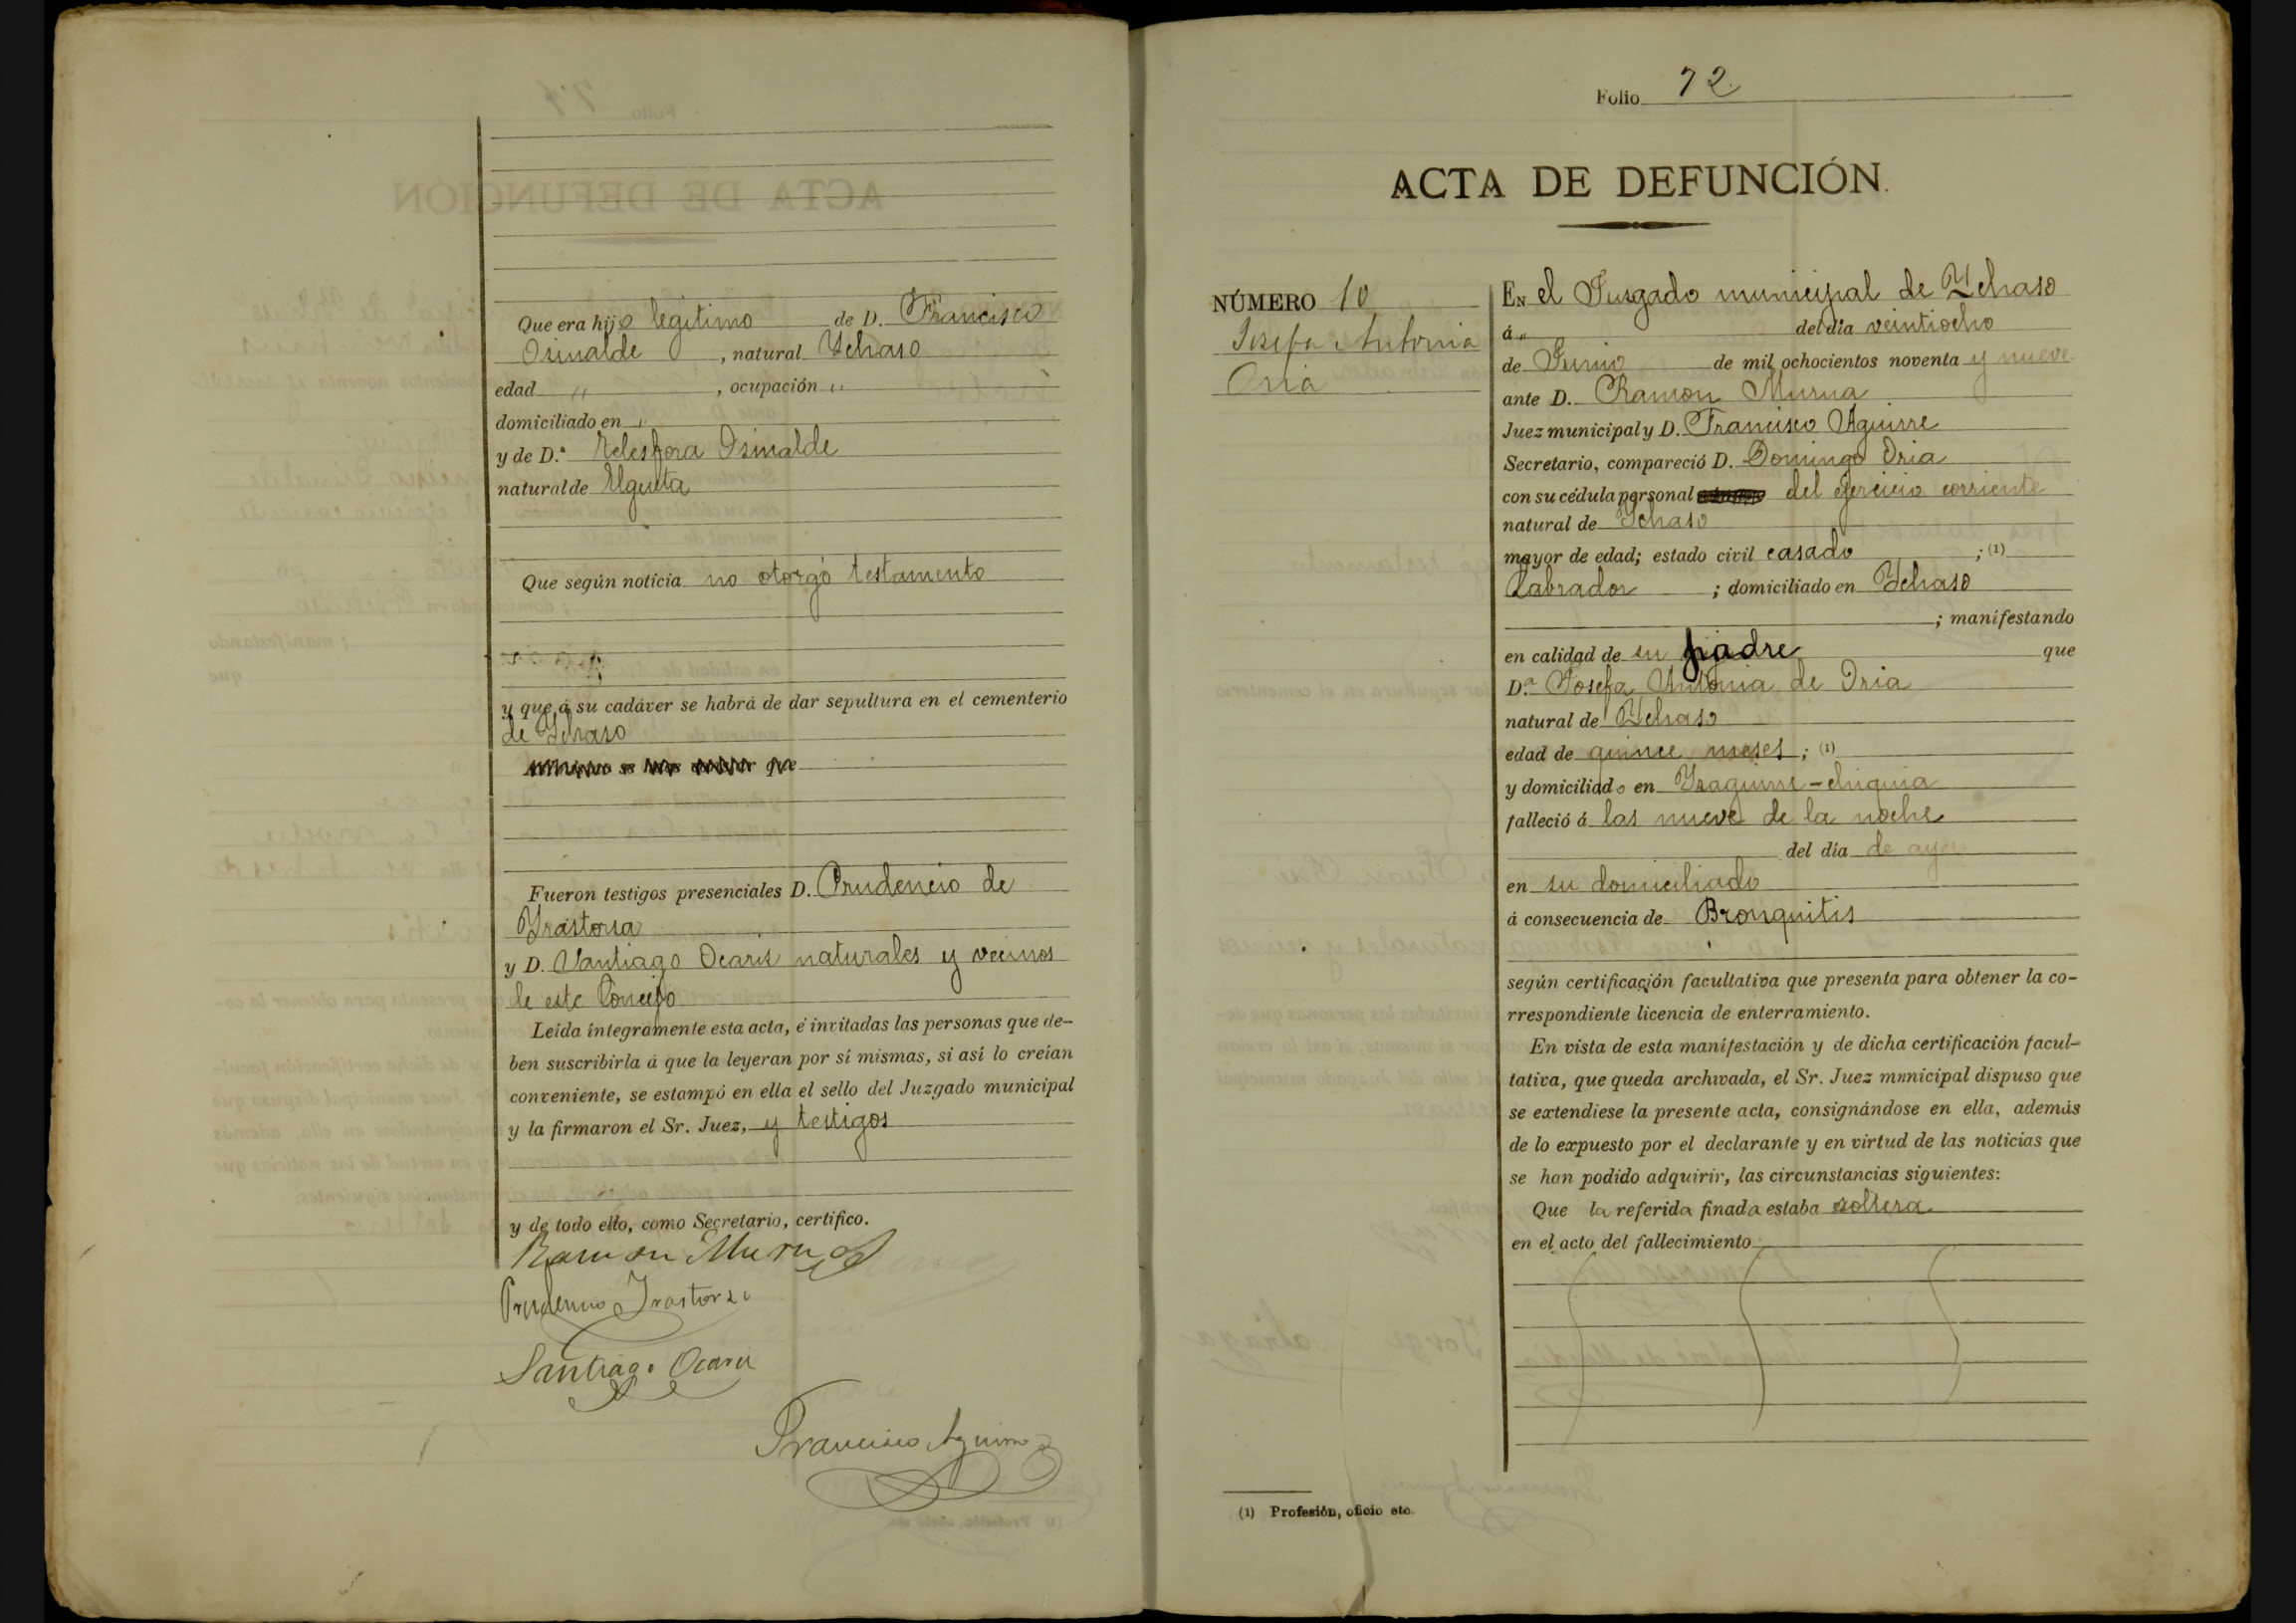 Que era hijo legitimo de D. Francisco
Osinalde, natural Ychaso
edad " , ocupación "
domiciliado en "
y de D.ª Telesfora Osinalde
natural de Elgueta
Que según noticia no otorgó testamento
y que á su cadáver se habrá de dar sepultura en el cementerio
de Ychaso
que
Fueron testigos presenciales D. Prudencio de
Yrastorsa
y D. Santiago Ocaris naturales y vecinos
de este Concejo
Leída íntegramente esta acta, é invitadas las personas que de-
ben suscribirla á que la leyeran por sí mismas, si así lo creían
conveniente, se estampó en ella el sello del Juzgado municipal
y la firmaron el Sr. Juez, y testigos
y de todo ello, como Secretario, certifico.
Ramon Murua
Prudencio Irastorza
Santiago Ocariz
Francisco Aguirre
Folio 72.
ACTA DE DEFUNCIÓN.
NÚMERO 10
Josefa Antonia
Oria
EN el Jusgado municipal de Ychaso
á " del día veintiocho
de Junio de mil ochocientos noventa y nueve
ante D. Ramon Murua
Juez municipal y D. Francisco Aguirre
Secretario, compareció D. Domingo Oria
con su cédula personal del ejercicio corriente
natural de Ychaso
mayor de edad; estado civil casado ; (1)
Labrador ; domiciliado en Ychaso
; manifestando
en calidad de su padre que
D.ª Josefa Antonia de Oria
natural de Ychaso
edad de quince meses ; (1)
y domiciliado en Ysaguirre-chiquia
falleció á las nueve de la noche
del día de ayer
en su domiciliado
á consecuencia de Bronquitis
según certificación facultativa que presenta para obtener la co-
rrespondiente licencia de enterramiento.
En vista de esta manifestación y de dicha certificación facul-
tativa, que queda archivada, el Sr. Juez municipal dispuso que
se extendiese la presente acta, consignándose en ella, además
de lo expuesto por el declarante y en virtud de las noticias que
se han podido adquirir, las circunstancias siguientes:
Que la referida finada estaba soltera
en el acto del fallecimiento
(1) Profesión, oficio etc.